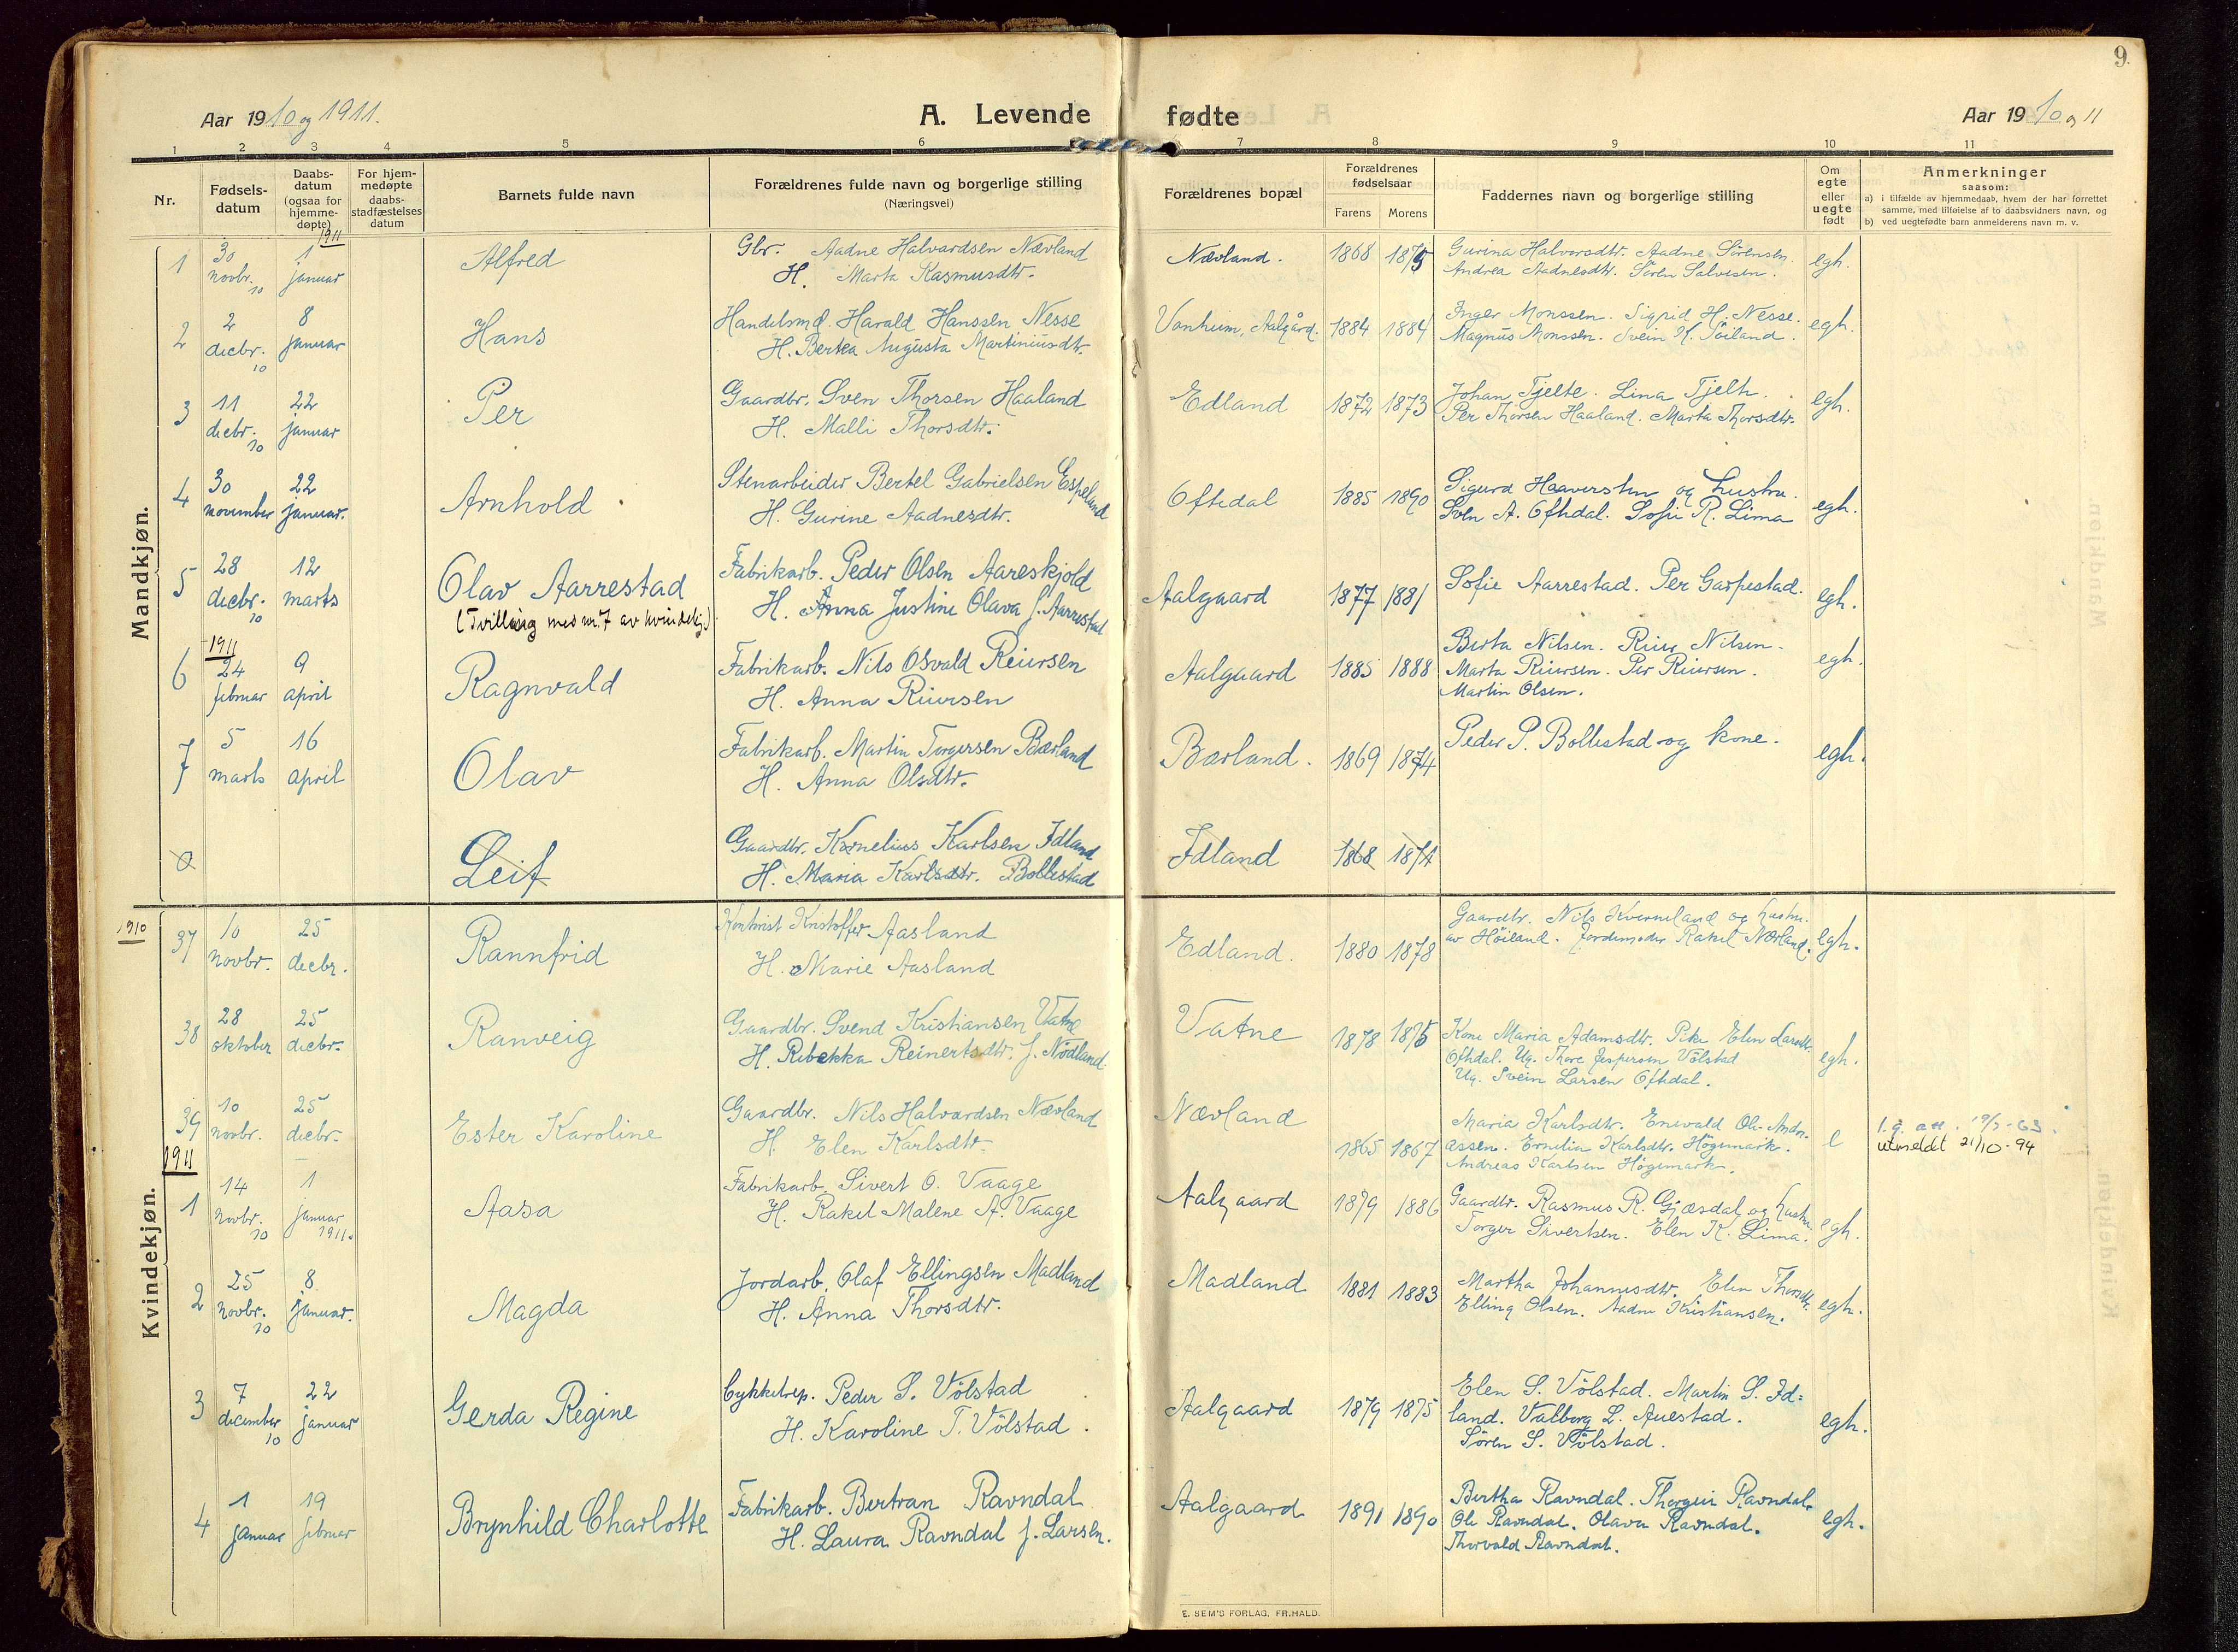 9.
Aar 1910 og 1911.
A. Levende fødte
Aar 1910 og 11
1 2 3 4 5 6 7 8 9 10 11
Nr.
Fødsels-
datum
Daabs-
datum
(ogsaa for
hjemme-
døpte)
For hjem-
medøpte
daabs-
stadfæstelses
datum
Barnets fulde navn
Forældrenes fulde navn og borgerlige stilling
(Næringsvei)
Forældrenes bopæl
Forældrenes
fødselsaar
Farens Morens
Faddernes navn og borgerlige stilling
Om
egte
eller
uegte
født
Anmerkninger
saasom:
a) i tilfælde av hjemmedaab, hvem der har forrettet
samme, med tilføielse af to daabsvidners navn, og
b) ved uegtefødte barn anmelderens navn m. v.
Mandkjøn.
1911
1 30 novbr. 10 1 januar Alfred
Gbr. Aadne Halvardsen Nævland
H. Marta Rasmusdtr.
Nævland. 1868 1875
Gurina Halvorsdtr. Aadne Sörensen.
Andrea Aadnesdtr. Sören Salvesen.
egh.
2 2 decbr. 10 8 januar Hans
Handelsmd. Harald Hanssen Nesse
H. Bertea Augusta Martiniusdtr.
Vonheim, Aalgård. 1884 1884
Inger Monssen. Sigrid H. Nesse.
Magnus Monssen. Svein K. Söiland.
egh.
3 11 decbr. 10 22 januar Per
Gaardbr. Sven Thorsen Haaland
H. Malli Thorsdtr.
Edland 1872 1873
Johan Tjelte. Lina Tjelte.
Per Thorsen Haaland. Marta Thorsdtr.
egh.
4 30 november 22 januar. Arnhold
Stenarbeider Bertel Gabrielsen Espeland
H. Gurine Aadnesdtr.
Oftedal 1885 1890
Sigurd Haaversten og hustru.
Sven A. Oftedal. Sofie R. Lima
egh.
5 28 decbr. 10 12 marts Olav Aarrestad
(Tvilling med nr. 7 av kvindekj.)
Fabrikarb. Peder Olsen Aareskjold
H. Anna Justine Olava f. Aarrestad
Aalgaard 1877 1881
Sofie Aarrestad. Per Garpestad.
egh.
1911
6 24 februar 9 april Ragnvald
Fabrikarb. Nils Osvald Reiersen
H. Anna Reiersen
Aalgaard 1885 1888
Berta Nilsen. Reier Nilsen.
Marta Reiersen. Per Reiersen.
Martin Olsen.
egh.
7 5 marts 16 april Olav
Fabrikarb. Martin Torgersen Bærland
H. Anna Olsdtr.
Bærland. 1869 1874
Peder P. Bollestad og kone.
egh.
Leif
Gaardbr. Kornelius Karlsen Idland
H. Maria Karlsdtr. Bollestad
Idland 1868 1874
Kvindekjøn.
1910
37 10 novbr. 25 decbr. Rannfrid
Kristoffer Aasland
H. Marie Aasland
Edland. 1880 1878
Gaardbr. Nils Kverneland og hustru.
av Höiland. Jordemoder Rakel Nævland.
egh.
38 28 oktober 25 decbr. Ranveig
Gaardbr. Svend Kristiansen Vatne
H. Rebekka Reinertsdtr. f. Nödland.
Vatne 1878 1875
Kone Maria Adamsdtr. Pike Elen Larsdtr.
Oftedal. Ug. Thore Jespersen Völstad
Ug. Svein Larsen Oftedal.
egh.
39 10 novbr. 25 decbr. Ester Karoline
Gaardbr. Nils Halvardsen Nævland
H. Elen Karlsdtr.
Nævland 1865 1867
Maria Karlsdtr. Enevald Ole Andre-
assen. Ernilia Karlsdtr. Högemark.
Andreas Karlsen Högemark.
e
utmeldt 21/10-94
1911
1 14 novbr. 10 1 januar 1911. Aasa
Fabrikarb. Sivert O. Vaage
H. Rakel Malene A. Vaage
Aalgaard 1879 1886
Gaardbr. Rasmus R. Gjæsdal og hustru.
Torger Sivertsen. Elen K. Lima.
egh.
2 25 novbr. 10 8 januar. Magda
Jordarb. Olaf Ellingsen Madland
H. Anna Thorsdtr.
Madland 1881 1883
Martha Johannesdtr. Elen Thorsdtr.
Elling Olsen. Aadne Kristiansen.
egh.
3 7 december 10 22 januar Gerda Regine
Cykkelrep. Peder S. Völstad
H. Karoline T. Völstad.
Aalgaard 1879 1875
Elen S. Völstad. Martin S. Id=
land. Valborg L. Auestad.
Sören S. Völstad.
egh.
4 1 januar 19 februar Brynhild Charlotte
Fabrikarb. Bertran Ravndal
H. Laura Ravndal f. Larsen.
Aalgaard 1891 1890
Bertha Ravndal. Thorgeir Ravndal.
Ole Ravndal. Olava Ravndal.
Thorvald Ravndal.
egh.
E. SEM'S FORLAG, FR.HALD.